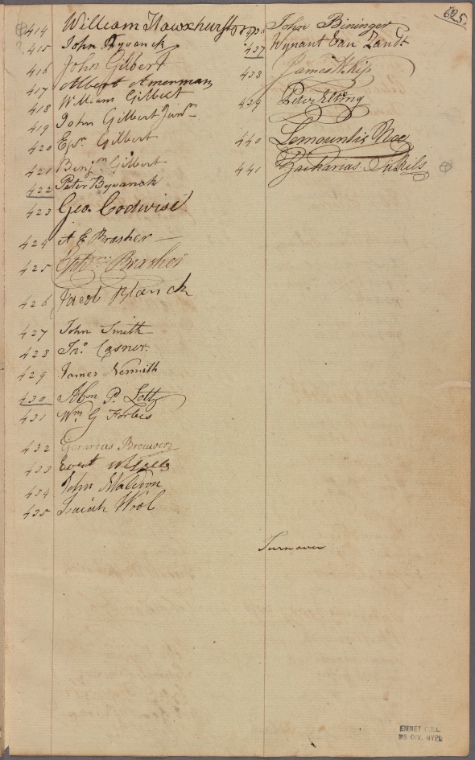 625.
414 William Hawxhurst
415 John Byvanck
416 John Gilbert
417 Albert Amerman
418 William Gilbert
419 John Gilbert Junr
420 Epm Gilbert
421 Benjm Gilbert
422 Peter Byvanck
423 Geo. Codwise
424 A E Brasher
425 Ephm Brasher
426 Jacob Blanck
427 John Smith
428 Jno. Casner.
429 James Nesmith
430 Abm P. Lott
431 Wm G Forbes
432 Brewer
433 Evert
434 John Waldron
435 Isaiah Wool
436 John Bininger
437 Wynant Van Zandt
438 James W. Kip
439 Peter Elting
440 Noe
441 Zacharias Sickels
Turnover
EMMET COLL.
MS COL. NYPL